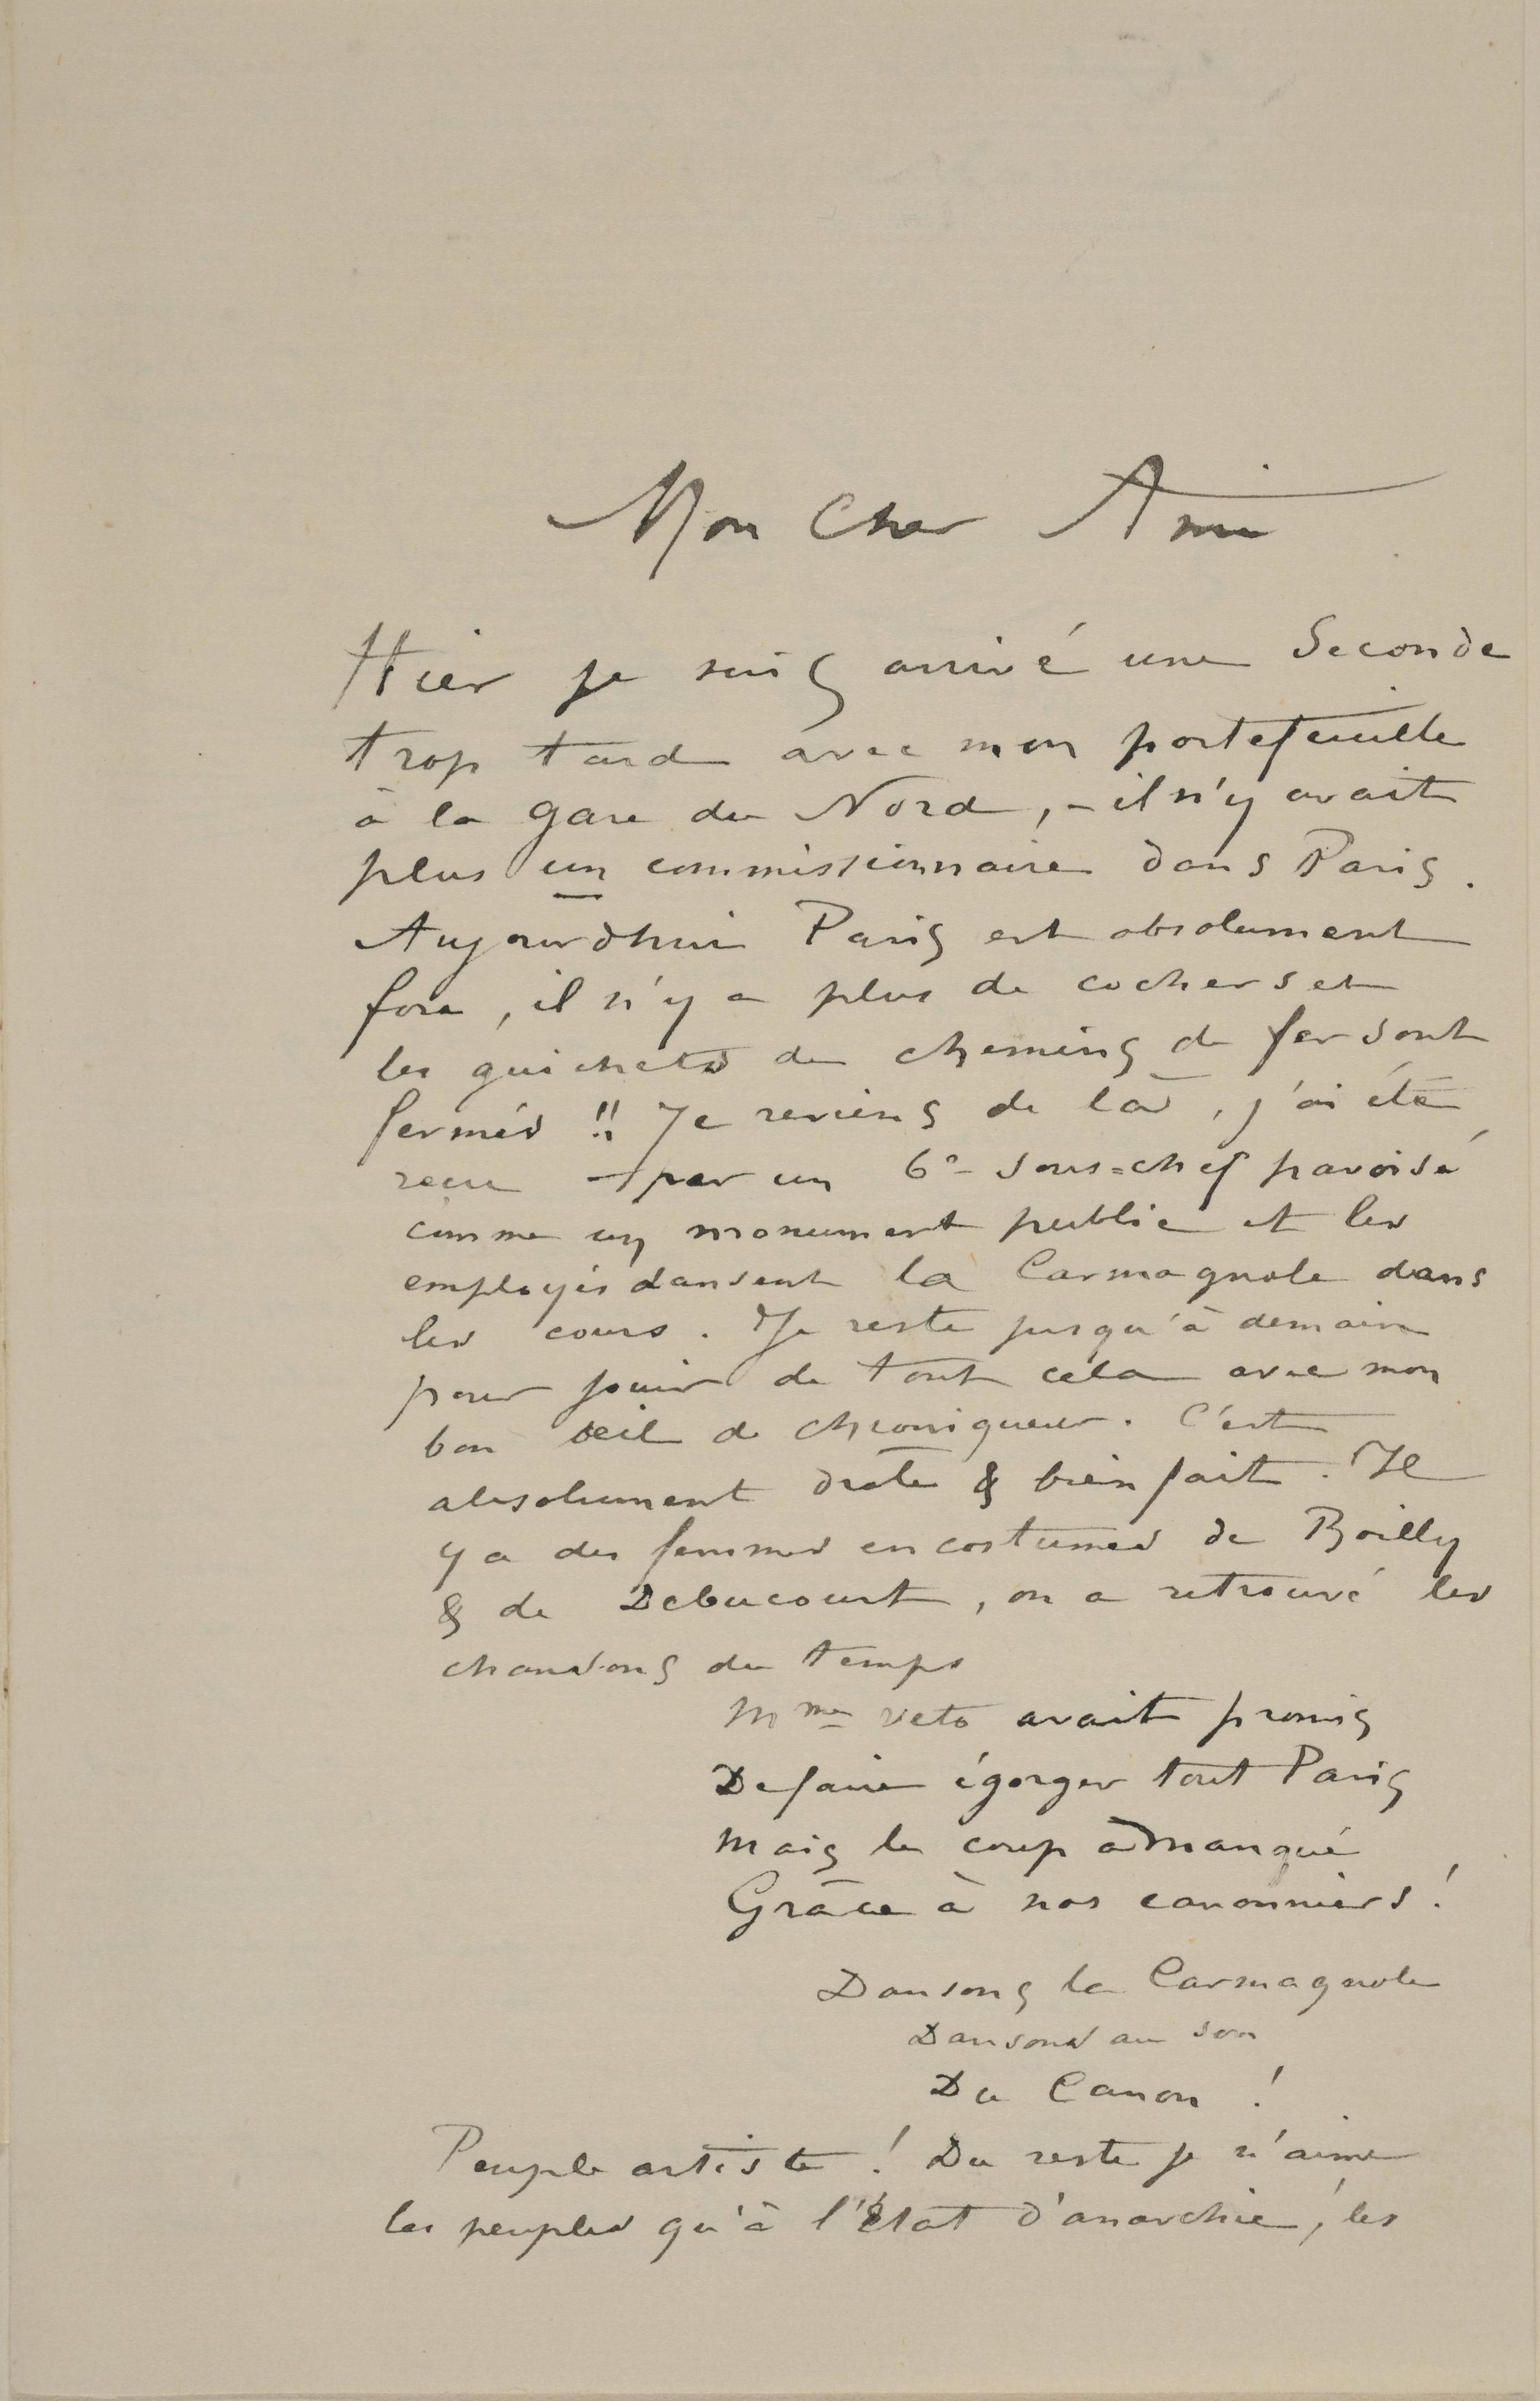 Mon Cher Ami
Hier je suis arrivé une Seconde
trop tard avec mon portefeuille
à la gare du Nord, - il n'y avait
plus un commissionnaire dans Paris.
Aujourdhui Paris est absolument
fou, il n'y a plus de cochers et
les guichets de chemins de fer sont
fermés !! Je reviens de là, j'ai été
reçu par un 6e sous=chef pavoisé
comme un monument public et les
employés dansent la Carmagnole dans
les cours. Je reste jusqu'à demain
pour jouir de tout cela avec mon
bon oeil de chroniqueur. C'est
absolument drôle & bien fait. Il
y a des femmes en costumes de Boilly
& de Debucourt, on a retrouvé les
chansons du temps
Mme veto avait promis
De faire égorger tout Paris
Mais le coup a manqué
Grâce à nos canonniers !
Dansons la Carmagnole
Dansons au son
Du Canon !
Peuple artiste ! Du reste je n'aime
les peuples qu'à l'État d'anarchie, les